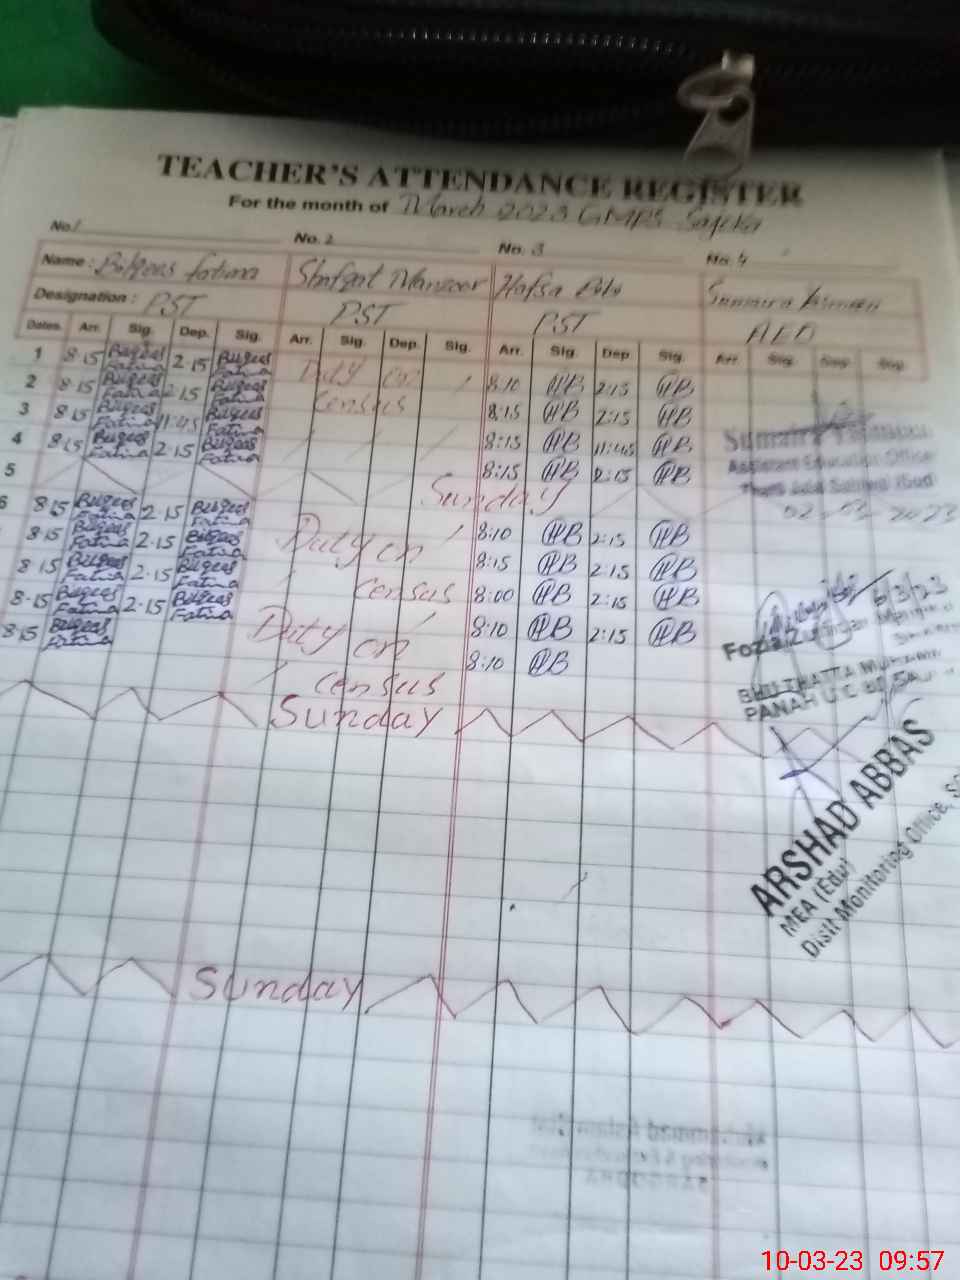 TEACHER'S ATTENDANCE REGISTER
For the month of March 2023 GMPS
No.1 No. 2 No. 3 No. 4
Name: Bilqees Fatima Shafqat Manzoor Hafsa Sumaira Yasmeen
Designation: PST PST PST AEO
Dates. Arr. Sig. Dep. Sig. Arr. Sig. Dep. Sig. Arr. Sig. Dep Sig. Arr. Sig. Sig.
1 8:15 Bilqees Fatima 2:15 Bilqees Fatima Duty on 8:10 HB 2:15 HB
2 8:15 Bilqees Fatima 2:15 Bilqees Fatima Census 8:15 HB 2:15 HB
3 8:15 Bilqees Fatima 11:45 Bilqees Fatima 8:15 HB 11:45 HB
4 8:15 Bilqees Fatima 2:15 Bilqees Fatima 8:15 HB 2:15 HB
5 Sunday
6 8:15 Bilqees Fatima 2:15 Bilqees Fatima Duty on 8:10 HB 2:15 HB
8:15 Bilqees Fatima 2:15 Bilqees Fatima Census 8:15 HB 2:15 HB
8:15 Bilqees Fatima 2:15 Bilqees Fatima 8:00 HB 2:15 HB
8:15 Bilqees Fatima 2:15 Bilqees Fatima Duty on 8:10 HB 2:15 HB
8:15 Bilqees Fatima Census 8:10 HB
Sunday
Sunday
Sumaira Yasmeen
Assistant Education Office
02-03-2023
6/3/23
Fozia
PANAH U.C
ARSHAD ABBAS
MEA (Edu)
Distt Monitoring Office,
10-03-23 09:57